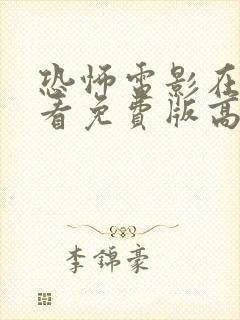 恐怖雷影在
看免费版高
李錦豪